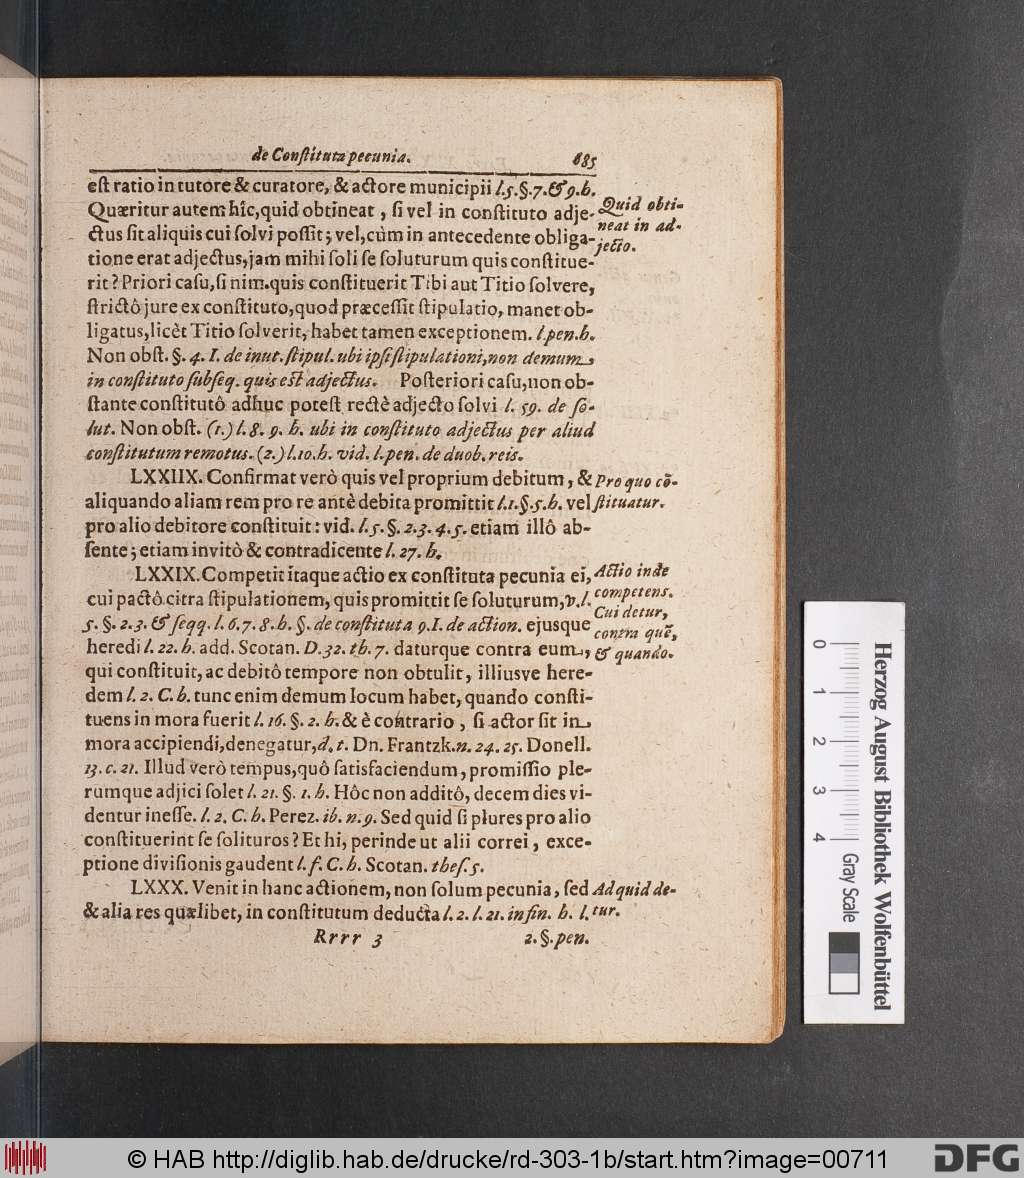 de Conſtituta pecunia. 685
eſt ratio in tutore & curatore, & actore municipii l. 5. §. 7. & 9. h.
Quæritur autem hîc, quid obtineat, ſi vel in conſtituto adje-
ctus ſit aliquis cui ſolvi poſſit; vel, cùm in antecedente obliga-
tione erat adjectus, jam mihi ſoli ſe ſoluturum quis conſtitue-
rit? Priori caſu, ſi nim. quis conſtituerit Tibi aut Titio ſolvere,
ſtrictô jure ex conſtituto, quod præceſſit ſtipulatio, manet ob-
ligatus, licèt Titio ſolverit, habet tamen exceptionem. l. pen. h.
Non obſt. §. 4. I. de inut. ſtipul. ubi ipſi ſtipulationi, non demum,
in conſtituto ſubſeq. quis eſt adjectus. Poſteriori caſu, non ob-
ſtante conſtitutô adhuc poteſt rectè adjecto ſolvi l. 59. de ſo-
lut. Non obſt. (1.) l. 8. 9. h. ubi in conſtituto adjectus per aliud
conſtitutum remotus. (2.) l. 10. h. vid. l. pen. de duob. reis.
Quid obti-
neat in ad-
jecto.
LXXIIX. Confirmat verò quis vel proprium debitum, &
aliquando aliam rem pro re antè debita promittit l. 1. §. 5. h. vel
pro alio debitore conſtituit: vid. l. 5. §. 2. 3. 4. 5. etiam illô ab-
ſente; etiam invitò & contradicente l. 27. h.
Pro quo cõ-
ſtituatur.
LXXIX. Competit itaque actio ex conſtituta pecunia ei,
cui pactô citra ſtipulationem, quis promittit ſe ſoluturum, v. l.
5. §. 2. 3. & ſeqq. l. 6. 7. 8. h. §. de conſtituta 9. I. de action. ejusque
heredi l. 22. h. add. Scotan. D. 32. th. 7. daturque contra eum,
qui conſtituit, ac debitô tempore non obtulit, illiusve here-
dem l. 2. C. h. tunc enim demum locum habet, quando conſti-
tuens in mora fuerit l. 16. §. 2. h. & è contrario, ſi actor ſit in
mora accipiendi, denegatur, d. t. Dn. Frantzk. n. 24. 25. Donell.
13. c. 21. Illud verò tempus, quô ſatisfaciendum, promiſſio ple-
rumque adjici ſolet l. 21. §. 1. h. Hôc non additô, decem dies vi-
dentur ineſſe. l. 2. C. h. Perez. ib. n. 9. Sed quid ſi plures pro alio
conſtituerint ſe ſolituros? Et hi, perinde ut alii correi, exce-
ptione diviſionis gaudent l. f. C. h. Scotan. theſ. 5.
Actio inde
competens.
Cui detur,
contra quẽ,
& quando.
LXXX. Venit in hanc actionem, non ſolum pecunia, ſed
& alia res quælibet, in conſtitutum deducta l. 2. l. 21. in fin. h. l.
Ad quid de-
tur.
Rrrr 3 2. §. pen.
Herzog August Bibliothek Wolfenbüttel
0 1 2 3 4 Gray Scale
© HAB http://diglib.hab.de/drucke/rd-303-1b/start.htm?image=00711
DFG